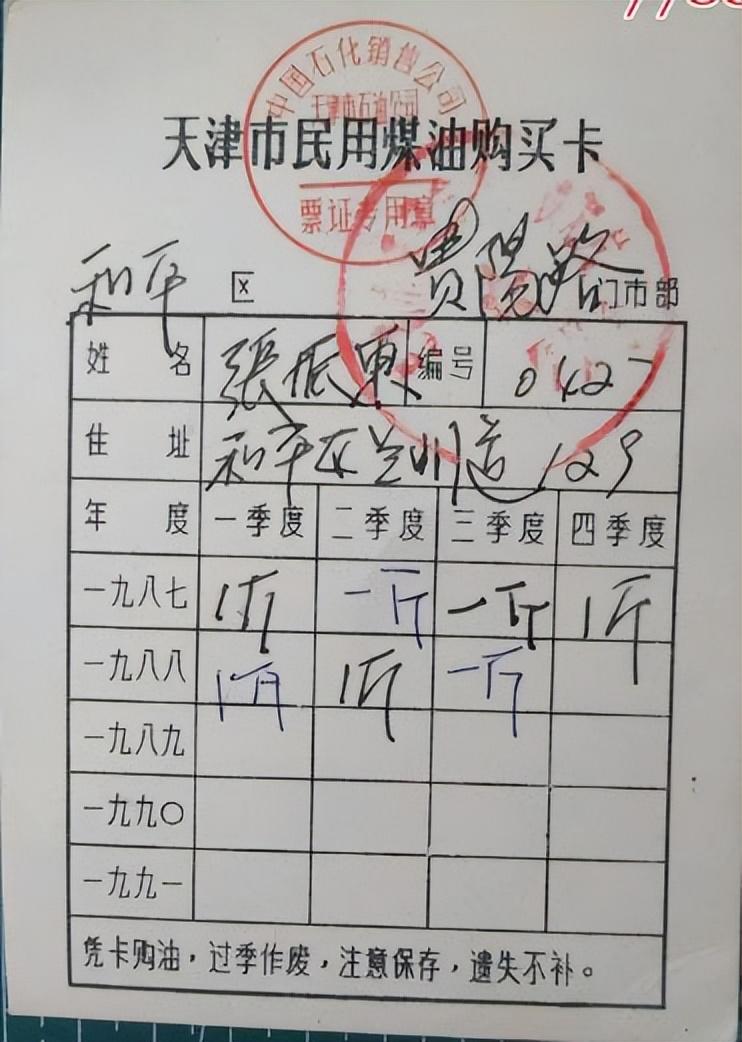 中国石化销售公司
天津市石油公司
天津市民用煤油购买卡
票证专用章
和平 区 贵陽路 门市部
姓名 張振東 编号 0427
住址 和平区兰州道129
年度 一季度 二季度 三季度 四季度
一九八七 1斤 一斤 一斤 1斤
一九八八 1斤 1斤 一斤
一九八九
一九九〇
一九九一
凭卡购油，过季作废，注意保存，遗失不补。